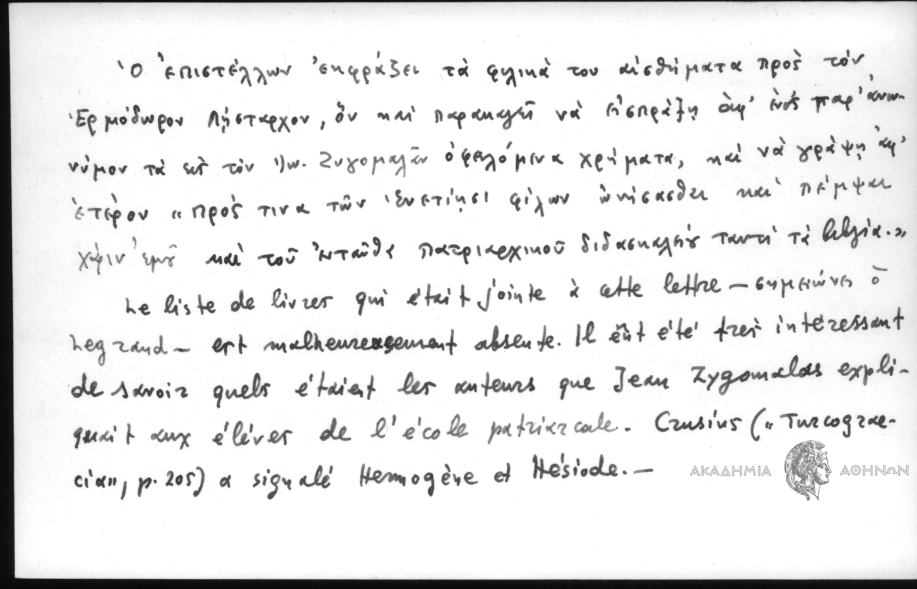 Ὁ ἐπιστέλλων ἐκφράζει τὰ φιλικά του αἰσθήματα πρὸς τὸν
Ἑρμόδωρον Λήσταρχον, ὃν καὶ παρακαλεῖ νὰ εἰσπράξῃ ἀφ' ἑνὸς παρ' ἀνω-
νύμου τὰ εἰς τὸν Ἰω. Ζυγομαλᾶν ὀφειλόμενα χρήματα, καὶ νὰ γράψῃ ἀφ'
ἑτέρου "πρός τινα τῶν Ἐνετίῃσι φίλων ὠνήσασθαι καὶ πέμψαι
χάριν ἐμοῦ καὶ τοῦ ἐνταῦθα πατριαρχικοῦ διδασκαλείου ταυτὶ τὰ βιβλία."
Le liste de livres qui était jointe à cette lettre — σημειώνει ὁ
Legrand — est malheureusement absente. Il eût été très intéressant
de savoir quels étaient les auteurs que Jean Zygomalas expli-
quait aux élèves de l'école patriarcale. Crusius ("Turcograe-
cia", p. 205) a signalé Hermogène et Hésiode. —
ΑΚΑΔΗΜΙΑ ΑΘΗΝΩΝ